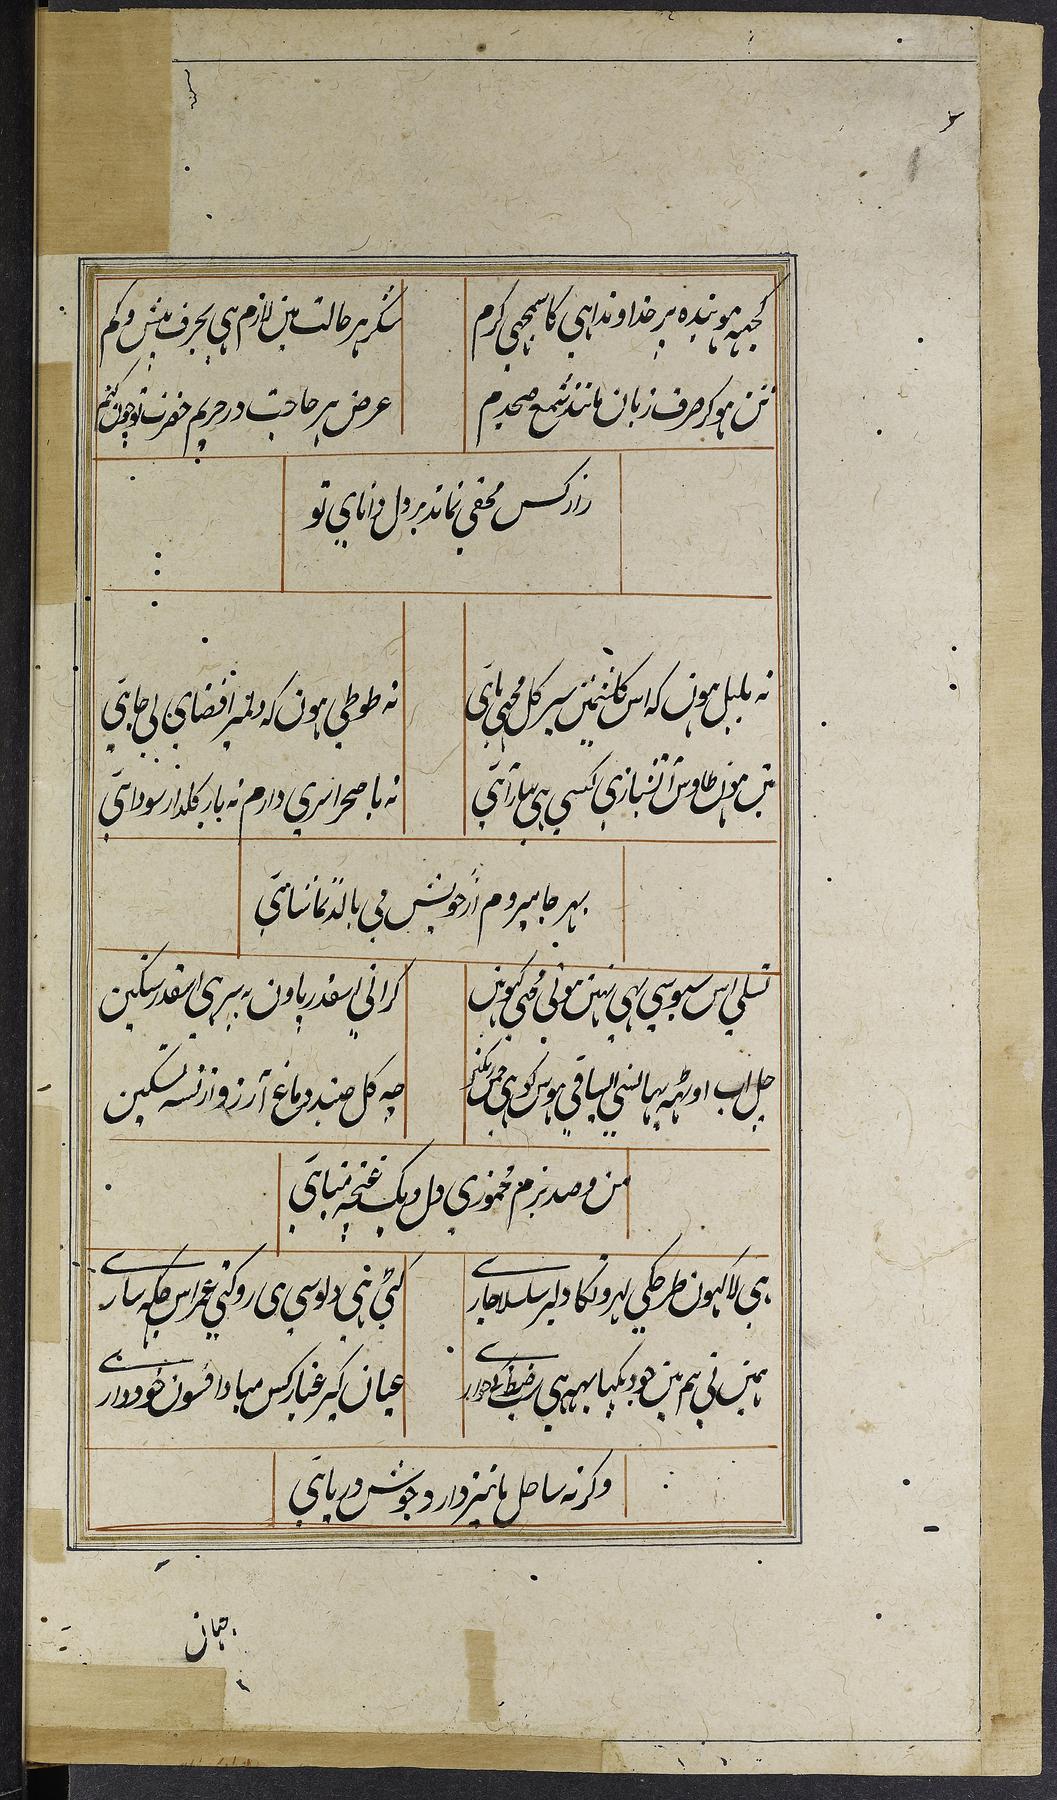 کجبہ ہو بندہ پر خداوندا ہی کا سمجہی کرم
شکر ہر حالت مین لازم ہی بحرف بیش و کم
تن ہو کر صرف زبان مانند شمع صبحدم
عرض ہر حاجت در حریم حضرت تو چون کنم
راز کس مخفی نماند بر دل دانای تو
نہ بلبل ہون کہ اس کلشنمین سیر کل مجہی بہای
نہ طوطی ہون کہ دلپر افضای بی جاہی
مین ہون طاوس آتشبازی کسی ہی
نہ با صحرا سری دارم نہ با کلزار سوداہی
بہر جا میروم از خویش می بالد تماشاہی
تسلی اس سبوسی بہی نہین ہوتی مجہی کہو مین
کرانی اسقدر پاون پہ سر ہی اسقدر سنکین
چل اب اوٹہہ یہانسی ای ساقی ہوس کو ہی
چہ کل چیند دماغ آرزو از نشہ تسکین
من و صد بزم مخموری دل و یک غنچہ میناہی
ہی لاکہون طرحکی لہرونکا دلپر سلسلا جاری
کٹی ہی ولوسی ہی روکتی عمر اس جکہہ ساری
ہمین نی ہم مین جو دیکہا یہہ ہی
عنان کیر غبار کس مبادا فسون خودداری
وکرنہ ساحل ما نیز دارد جوش دریاہی
جہان